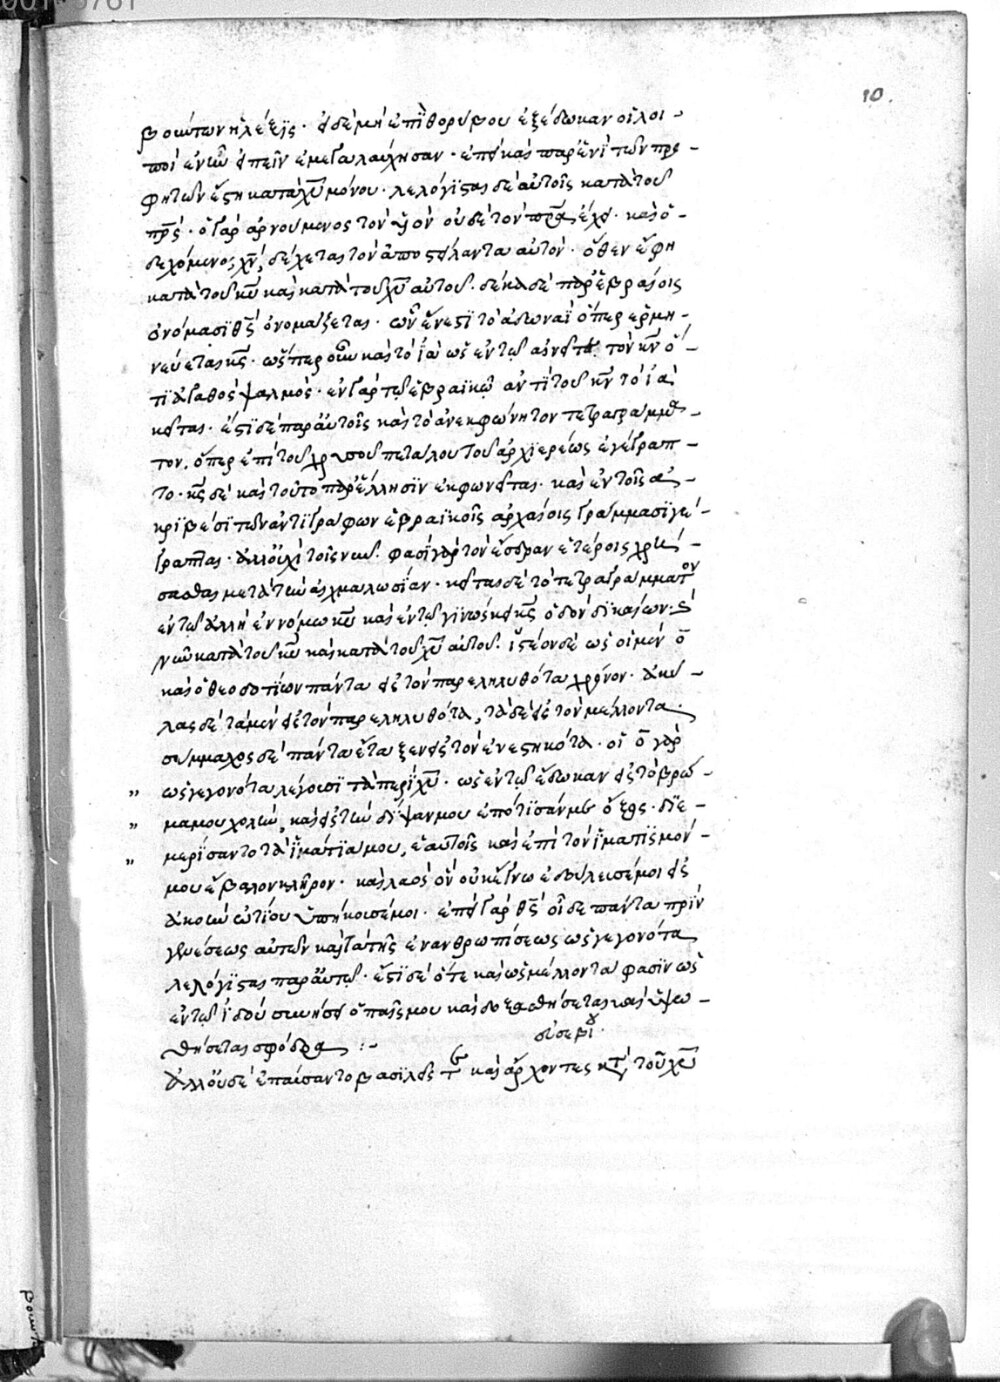 10.
βοιώτων ἡ λέξις· εἰ δὲ μὴ ἐπὶ θορύβου ἐξέδωκαν οἱ λοι-
ποὶ ἐνῶ εἰπεῖν ἐμεγαλαύχησαν· ἐπεὶ καὶ παρ' ἑνὶ τῶν προ-
φητῶν ἔστι κατὰ χῦ μόνου· λελόγισται δὲ αὐτοῖς κατὰ τοῦ
πρς· ὁ γὰρ ἀρνούμενος τὸν υἱὸν οὐδὲ τὸν πρα ἔχει· καὶ ὁ
δεχόμενος χν, δέχεται τὸν ἀποστείλαντα αὐτόν· ὅθεν ἔφη
κατὰ τοῦ κυ καὶ κατὰ τοῦ χυ αὐτοῦ· δέκα δὲ παρ' ἑβραίοις
ὀνόμασι θς ὀνομάζεται· ὧν ἕν ἐστι τὸ ἀδωναῒ ὅπερ ἑρμη-
νεύεται κς· ὥσπερ οὖν καὶ τὸ ἰὰ ὡς ἐν τῷ αἰνεῖτε τὸν κν ὅ-
τι ἀγαθὸς ψαλμός· ἐν γὰρ τῷ ἑβραϊκῷ ἀντὶ τοῦ κν τὸ ἰὰ
κεῖται· ἔστι δὲ παρ' αὐτοῖς καὶ τὸ ἀνεκφώνητον τετραγράμμα-
τον, ὅπερ ἐπὶ τοῦ χρυσοῦ πετάλου τοῦ ἀρχιερέως ἐγέγραπ-
το· κς δὲ καὶ τοῦτο παρ' ἕλλησιν ἐκφωνεῖται· καὶ ἐν τοῖς ἀ-
κριβέσι τῶν ἀντιγράφων ἑβραϊκοῖς ἀρχαίοις γράμμασι γέ-
γραπται· ἀλλ' οὐχὶ τοῖς νῦν· φασὶ γὰρ τὸν ἔσδραν ἑτέροις χρή-
σασθαι μετὰ τὴν αἰχμαλωσίαν· κεῖται δὲ τὸ τετραγράμματον
ἐν τῷ ἀλλ' ἢ ἐν νόμω κυ καὶ ἐν τῷ γινώσκει κς ὁδὸν δικαίων·
νῶ κατὰ τοῦ κυ καὶ κατὰ τοῦ χυ αὐτοῦ· ἰστέον δὲ ὡς οἱ μὲν ο
καὶ ὁ θεοδοτίων πάντα εἰς τὸν παρεληλυθότα χρόνον· ἀκύ-
λας δὲ τὰ μὲν εἰς τὸν παρεληλυθότα, τὰ δὲ εἰς τὸν μέλλοντα·
σύμμαχος δὲ πάντα ἔταξεν εἰς τὸν ἐνεστηκότα· οἱ ο γὰρ
ὡς γεγονότα λέγουσι τὰ περὶ χυ· ὡς ἐν τῷ ἔδωκαν εἰς τὸ βρῶ-
μα μου χολὴν, καὶ εἰς τὴν δίψαν μου ἐπότισάν με ὄξος· διε-
μερίσαντο τὰ ἱμάτια μου, ἑαυτοῖς καὶ ἐπὶ τὸν ἱματισμόν
μου ἔβαλον κλῆρον· καὶ λαὸς ὃν οὐκ ἔγνω ἐδούλευσέ μοι εἰς
ἀκοὴν ὠτίου ὑπήκουσέ μοι· ἐπεὶ γὰρ θς οἶδε πάντα πρὶν
γενέσεως αὐτῶν καὶ τὰ τῆς ἐνανθρωπίσεως ὡς γεγονότα
λελόγισται παρ' αὐτῷ· ἔστι δὲ ὅτε καὶ ὡς μέλλοντα φασὶν ὡς
ἐν τῷ ἰδοὺ συνήσει ὁ παῖς μου καὶ δοξασθήσεται καὶ ὑψω-
θήσεται σφόδρα :-
εὐσεβίου·
ἀλλ' οὐδὲ ἐπαύσαντο βασιλεῖς τ γ καὶ ἄρχοντες κτ τοῦ χυ